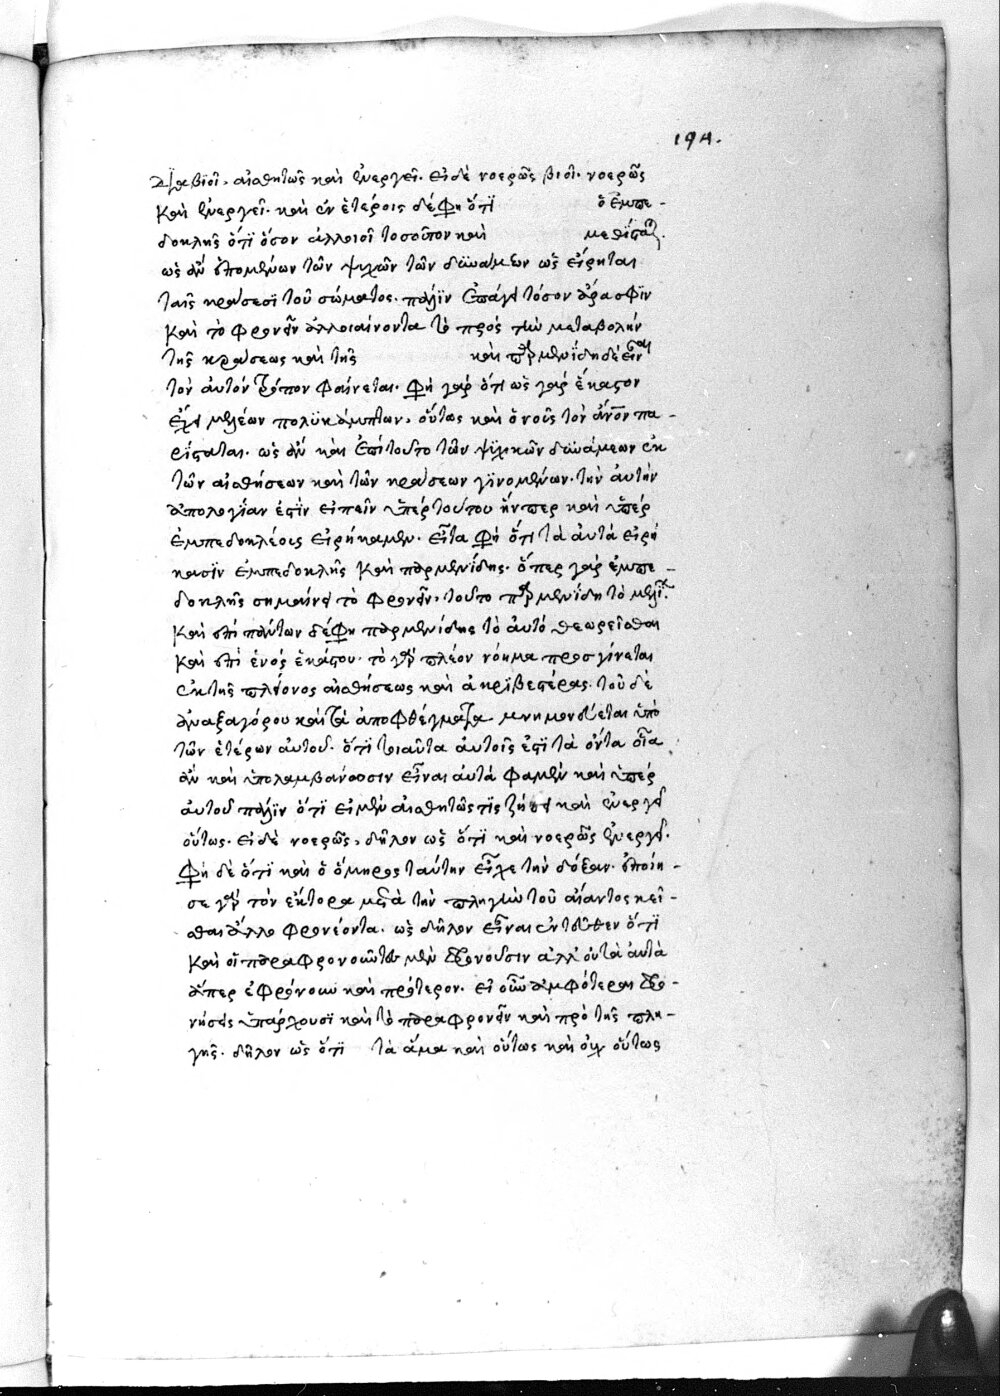 194.
διαβιοῖ, αἰσθητῶς καὶ ἐνεργεῖ. εἰ δὲ νοερῶς βιοῖ. νοερῶς
καὶ ἐνεργεῖ. καὶ ἐν ἑτέροις δέ φη ὅτι ὁ ἐμπε-
δοκλῆς ὅτι ὅσον ἀλλοιοῖ τοσοῦτον καὶ μεθίσταται.
ὡς ἂν ἑπομένων τῶν ψυχῶν τῶν δυνάμεων ὡς εἴρηται
ταῖς κράσεσι τοῦ σώματος. πάλιν
καὶ τὸ φρονεῖν ἀλλοιαίνοντα τὸ πρὸς τὴν μεταβολὴν
τῆς κράσεως καὶ τῆς καὶ παρμενίδης δὲ εἶναι
τὸν αὐτὸν τρόπον φαίνεται. φη γὰρ ὅτι ὡς γὰρ ἕκαστον
ἔχει μελέων πολυκάμπτων, οὕτως καὶ ὁ νοῦς τὸν ἄνον πα-
ρίσταται. ὡς ἂν καὶ ἐπὶ τούτο τῶν ψυχικῶν δυνάμεων ἐκ
τῶν αἰσθήσεων καὶ τῶν κράσεων γινομένων. τὴν αὐτὴν
ἀπολογίαν ἐστὶν εἰπεῖν ὑπὲρ τούτου ἥνπερ καὶ ὑπὲρ
ἐμπεδοκλέοις εἰρήκαμεν. εἶτα φη ὅτι τὰ αὐτὰ εἰρή
κασιν ἐμπεδοκλῆς καὶ παρμενίδης. ὅπερ γὰρ ἐμπε-
δοκλῆς σημαίνει τὸ φρονεῖν, τοῦτο παρμενίδη τὸ
καὶ ἐπὶ πάντων δέ φη παρμενίδης τὸ αὐτὸ θεωρεῖσθαι
καὶ ἐπὶ ἑνὸς ἑκάστου. τὸ γὰρ πλέον νόημα προσγίνεται
ἐκ τῆς πλείονος αἰσθήσεως καὶ ἀκριβεστέρας. τοῦ δὲ
ἀναξαγόρου καὶ τὰ ἀποφθέγματα μνημονεύεται ὑπὸ
τῶν ἑτέρων αὐτοῦ. ὅτι τοιαῦτα αὐτοῖς ἐστι τὰ ὄντα οἷα
ἂν καὶ ὑπολαμβάνουσιν εἶναι αὐτὰ φαμὲν καὶ ὑπὲρ
αὐτοῦ πάλιν ὅτι εἰ μὲν αἰσθητῶς τις ζήσει καὶ ἐνεργεῖ
οὕτως. εἰ δὲ νοερῶς, δῆλον ὡς ὅτι καὶ νοερῶς ἐνεργεῖ.
φη δὲ ὅτι καὶ ὁ ὅμηρος ταύτην εἶχε τὴν δόξαν. ἐποίη-
σε γὰρ τὸν ἕκτορα μετὰ τὴν πληγὴν τοῦ αἴαντος κεῖ-
σθαι ἄλλο φρονέοντα. ὡς δῆλον εἶναι ἐντεῦθεν ὅτι
καὶ οἱ παραφρονοῦντες μὲν φρονοῦσιν ἀλλ' οὐ τὰ αὐτὰ
ἅπερ ἐφρόνουν καὶ πρότερον. εἰ οὖν ἀμφότεραι φρο-
νήσεις ὑπάρχουσι καὶ τὸ παραφρονεῖν καὶ πρὸ τῆς πλη-
γῆς. δῆλον ὡς ὅτι τὰ ἅμα καὶ οὕτως καὶ οὐχ οὕτως